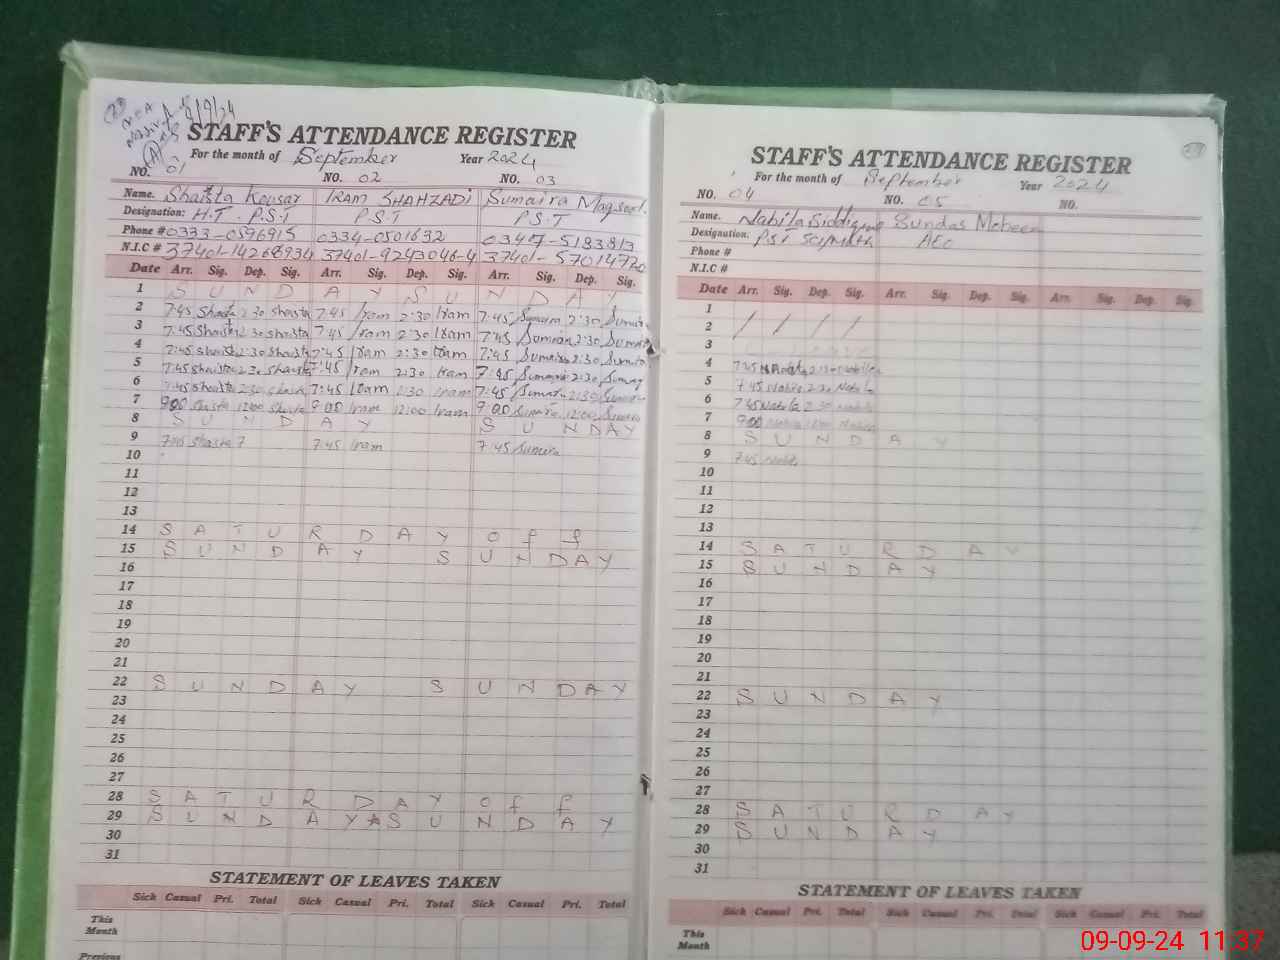 9/9/24
STAFF'S ATTENDANCE REGISTER
For the month of September Year 2024
NO. 01 NO. 02 NO. 03
Name. Shaista Kousar IRAM SHAHZADI Sumaira Maqsood.
Designation: H.T. P.S.T P.S.T P.S.T
Phone # 0333-0596915 0334-0501632 0347-5183813
N.I.C # 37401-1426893 37401-9243046-4 37401-5701472
Date Arr. Sig. Dep. Sig. Arr. Sig. Dep. Sig. Arr. Sig. Dep. Sig.
1 S U N D A Y S U N D A Y
2 7:45 Shaista 2:30 Shaista 7:45 Iram 2:30 Iram 7:45 Sumaira 2:30 Sumaira
3 7:45 Shaista 2:30 Shaista 7:45 Iram 2:30 Iram 7:45 Sumaira 2:30 Sumaira
4 7:45 Shaista 2:30 Shaista 7:45 Iram 2:30 Iram 7:45 Sumaira 2:30 Sumaira
5 7:45 Shaista 2:30 Shaista 7:45 Iram 2:30 Iram 7:45 Sumaira 2:30 Sumaira
6 7:45 Shaista 2:30 Shaista 7:45 Iram 2:30 Iram 7:45 Sumaira 2:30 Sumaira
7 9:00 Shaista 12:00 Shaista 9:00 Iram 12:00 Iram 9:00 Sumaira 12:00 Sumaira
8 S U N D A Y S U N D A Y
9 7:45 Shaista 7:45 Iram 7:45 Sumaira
10
11
12
13
14 S A T U R D A Y O f f
15 S U N D A Y S U N D A Y
16
17
18
19
20
21
22 S U N D A Y S U N D A Y
23
24
25
26
27
28 S A T U R D A Y O f f
29 S U N D A Y S U N D A Y
30
31
STATEMENT OF LEAVES TAKEN
Sick Casual Pri. Total Sick Casual Pri. Total Sick Casual Pri. Total
This Month
Previous
STAFF'S ATTENDANCE REGISTER
For the month of September Year 2024
NO. 04 NO. 05 NO.
Name. Nabila Siddique Sundas Mobeen
Designation: PST AEO
Phone #
N.I.C #
Date Arr. Sig. Dep. Sig. Arr. Sig. Dep. Sig. Arr. Sig. Dep. Sig.
1
2 / / / /
3
4 7:45 Nabila 2:30 Nabila
5 7:45 Nabila 2:30 Nabila
6 7:45 Nabila 2:30 Nabila
7 9:00 Nabila 12:00 Nabila
8 S U N D A Y
9 7:45 Nabila
10
11
12
13
14 S A T U R D A Y
15 S U N D A Y
16
17
18
19
20
21
22 S U N D A Y
23
24
25
26
27
28 S A T U R D A Y
29 S U N D A Y
30
31
STATEMENT OF LEAVES TAKEN
Sick Casual Pri. Total Sick Casual Pri. Total Sick Casual Pri. Total
This Month
09-09-24 11:37